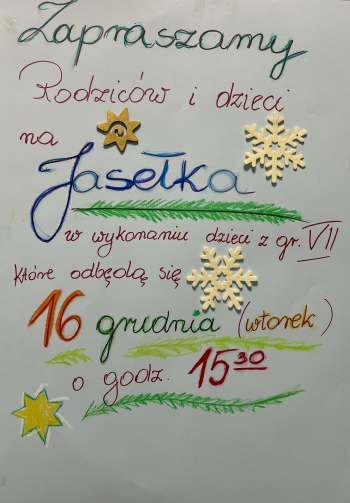 Zapraszamy
Rodziców i dzieci
na
Jasełka
w wykonaniu dzieci z gr. VII
które odbędą się
16 grudnia (wtorek)
o godz. 15 30